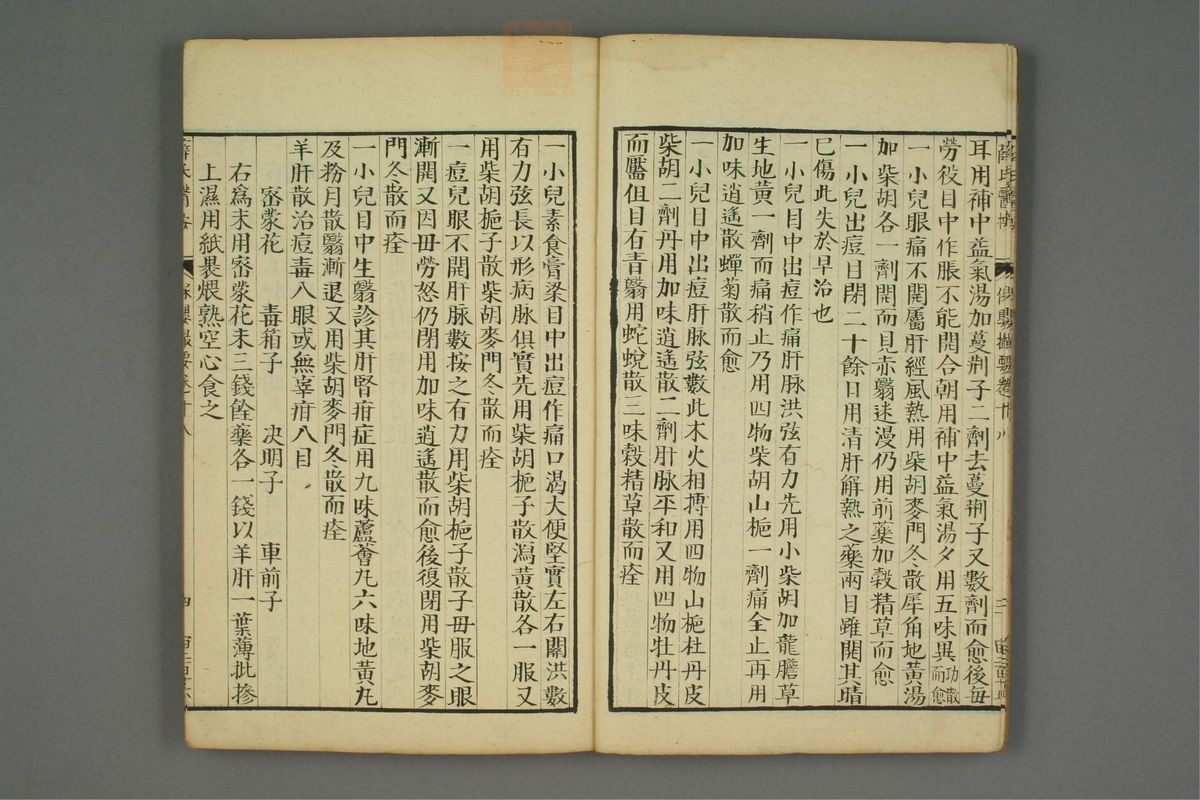 耳用補中益氣湯加蔓荆子二劑去蔓荆子又數劑而愈後每
勞役目中作脹不能開合朝用補中益氣湯夕用五味異功散而愈
一小兒眼痛不開屬肝經風熱用柴胡麥門冬散犀角地黃湯
加柴胡各一劑開而見赤翳迷漫仍用前藥加穀精草而愈
一小兒出痘目閉二十餘日用清肝解熱之藥兩目雖開其睛
已傷此失於早治也
一小兒目中出痘作痛肝脉洪弦有力先用小柴胡加龍膽草
生地黃一劑而痛稍止乃用四物柴胡山梔一劑痛全止再用
加味逍遙散蟬菊散而愈
一小兒目中出痘肝脉弦數此木火相搏用四物山梔牡丹皮
柴胡二劑丹用加味逍遙散二劑肝脉平和又用四物牡丹皮
而靨但目右青翳用蛇蛻散三味穀精草散而痊
一小兒素食膏梁目中出痘作痛口渴大便堅實左右關洪數
有力弦長以形病脉俱實先用柴胡梔子散瀉黃散各一服又
用柴胡梔子散柴胡麥門冬散而痊
一痘兒眼不開肝脉數按之有力用柴胡梔子散子母服之眼
漸開又因母勞怒仍閉用加味逍遙散而愈後復閉用柴胡麥
門冬散而痊
一小兒目中生翳診其肝腎疳症用九味蘆薈丸六味地黃丸
及粉月散翳漸退又用柴胡麥門冬散而痊
羊肝散治痘毒入眼或無辜疳入目
密蒙花 青箱子 决明子 車前子
右為末用密蒙花末三錢餘藥各一錢以羊肝一葉薄批摻
上濕用紙褁煨熟空心食之
保嬰撮要卷十八